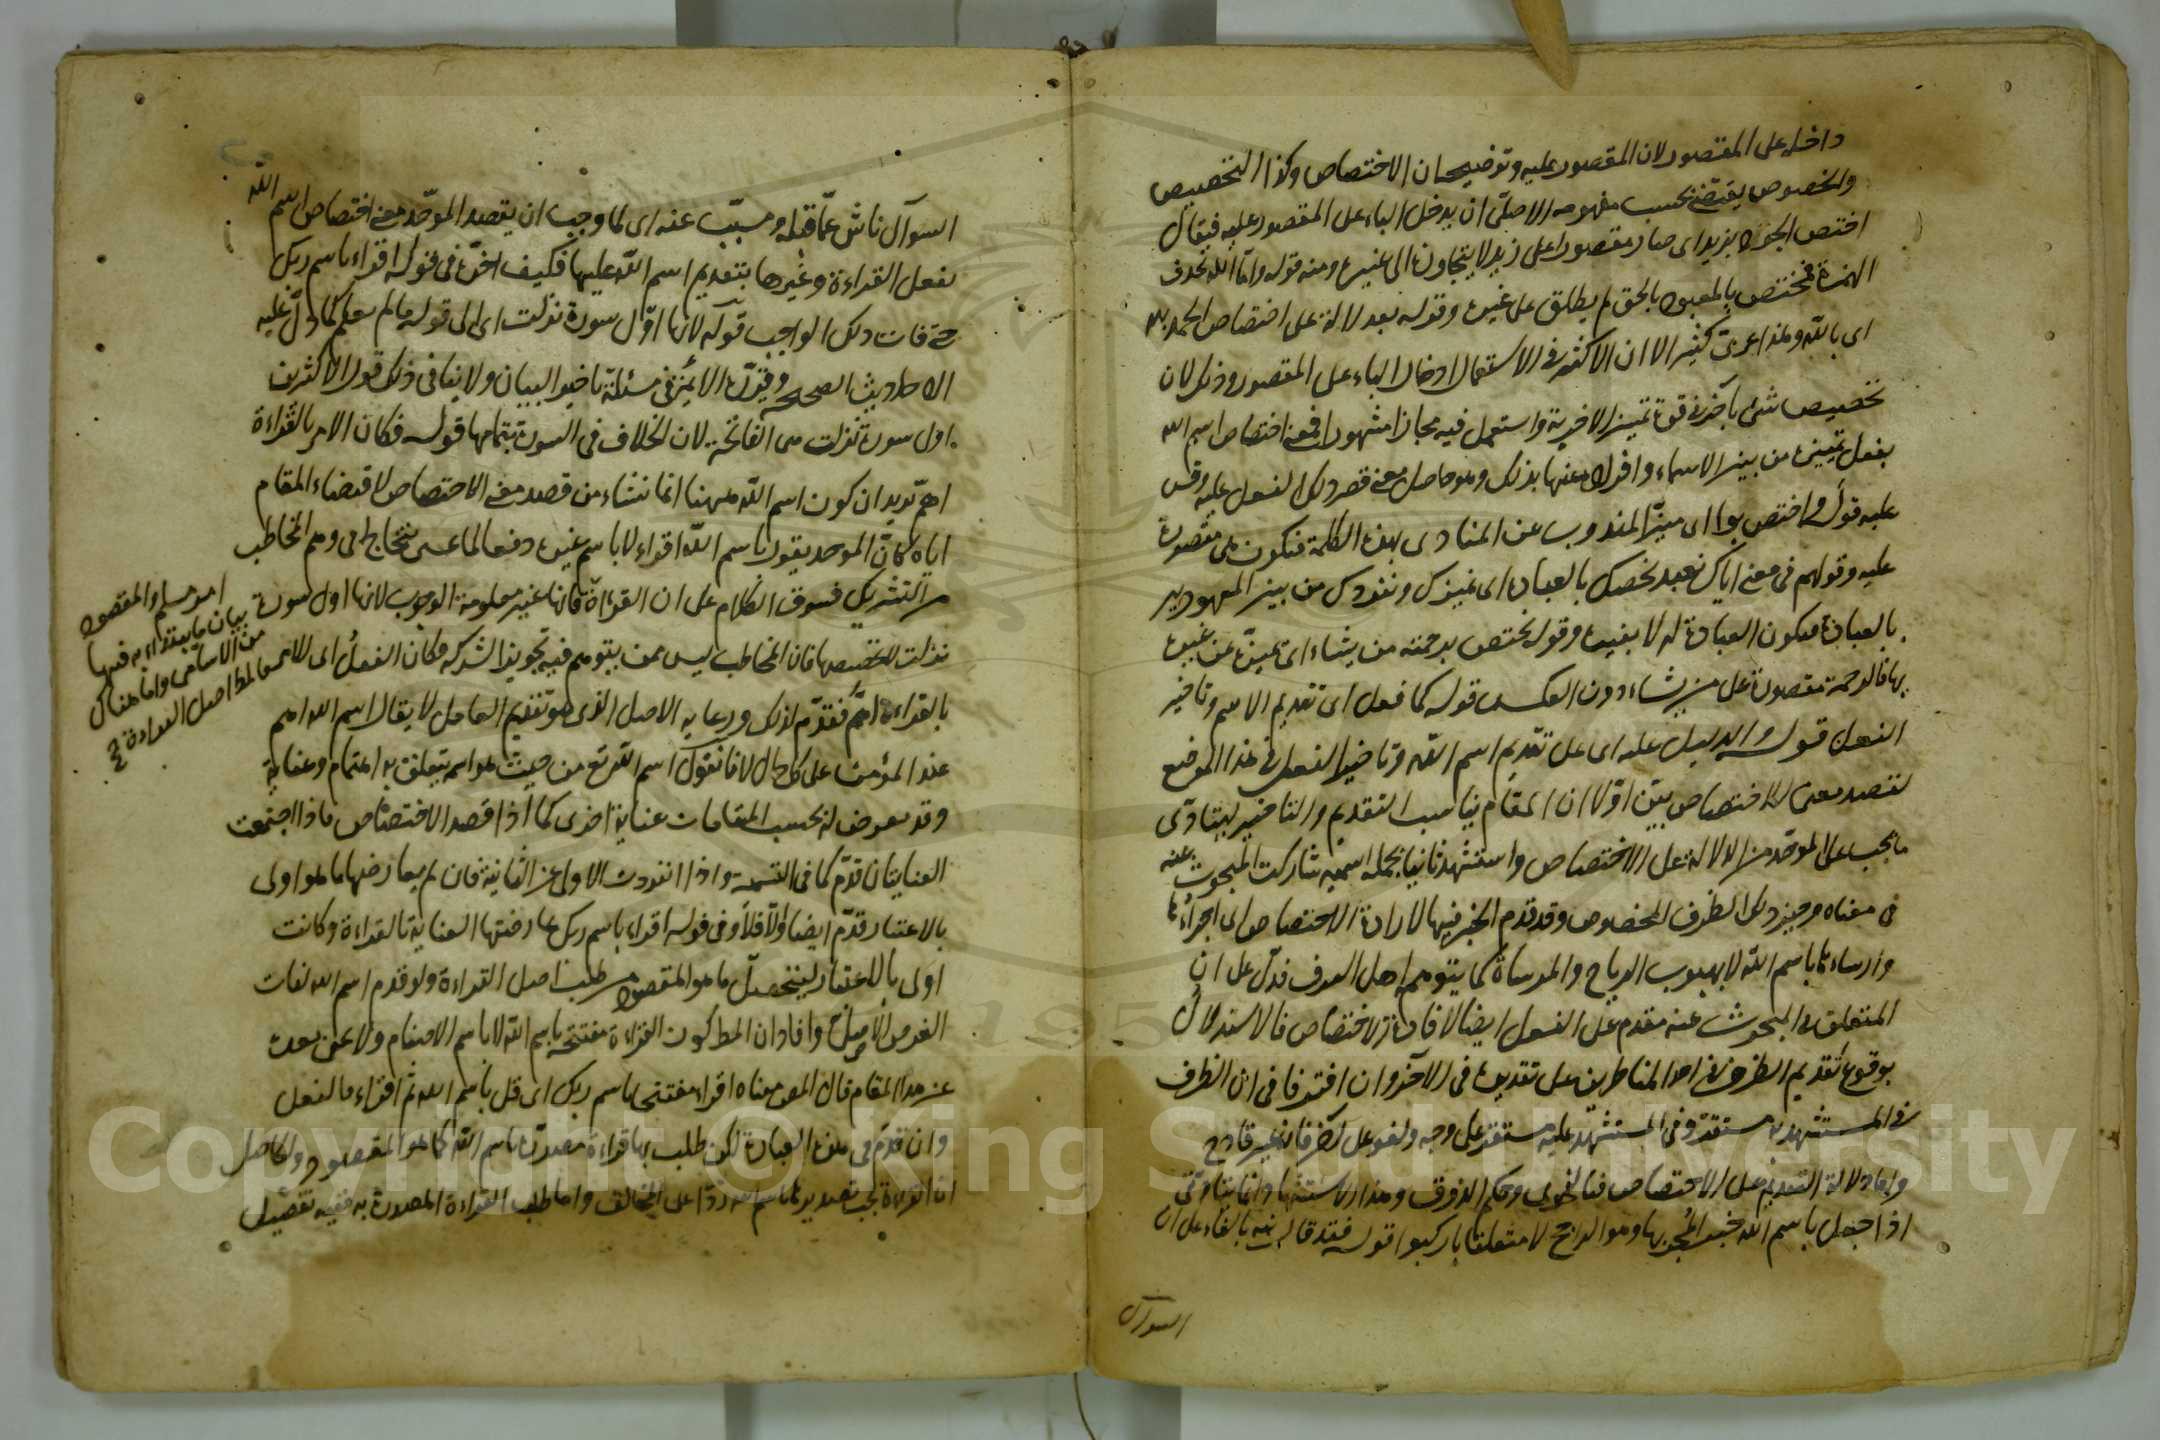 داخله على المقصور لان المقصور عليه وتوضيحه ان الاختصاص وكذا التخصيص
والخصوص يقتضى بحسب مفهومه الاصلى ان يدخل الباء على المقصور عليه فيقال
اختص الجود بزيد اى صار مقصورا على زيد لا يتجاوزه الى غيره ومنه قوله واما الله بحذف
الهمزة فمختص بالمعبود بالحق لم يطلق على غيره وقوله بعد لالة على اختصاص الحمد به
اى بالله وهذا عربى كثير الا ان الاكثر فى الاستعمال ادخال الباء على المقصور وذلك لان
تخصيص شئ بآخر فى قوة تميز الآخر به واستعمل فيه مجازا مشهورا فمعنى اختصاص اسم الله
بفعل تميزه من بين الاسماء وافراده عنها بذلك وهو حاصل معنى قصر ذلك الفعل عليه وقس
عليه قوله واختص بوا اى ميز المندوب عن المنادى بهذه الكلمة فتكون هى مقصورة
عليه وقولهم فى معنى اياك نعبد نخصك بالعبادة اى نميزك ونفردك من بين المعهودين
بالعبادة فتكون العبادة له لا بغيره وقوله يختص برحمته من يشاء اى يميزه عن غيره
بها فالرحمة مقصورة على من يشاء دون العكس قوله كما فعل اى تقديم الاسم وتاخير
الفعل قوله والدليل عليه اى على تقديم اسم الله وتاخير الفعل فى هذا الموضع
لقصد معنى الاختصاص بيّن اولا ان المقام يناسب التقديم والتاخير ليتأدى
ما يجب على الموحد من الدلالة على الاختصاص واستشهد ثانيا بجملة اسمية شاركت المبحوث عنه
فى معناه وحيز ذلك الظرف المخصوص وقد قدم الخبر فيها لارادة الاختصاص اى اجراؤها
وارساءها باسم الله لا بهبوب الرياح والمرساة كما يتوهم اهل العرف فدل على ان
المتعلق فى المبحوث عنه مقدم على الفعل ايضا لافادة الاختصاص فالاستدلال
بوقوع تقديم الظرف فى احد المناظرين على تقديره فى الآخر وان افترقا فى ان الظرف
فى المستشهد به مستقر وفى المستشهد عليه مستقر على وجه ولغو على آخر فانه غير قادح
واما دلالة التقديم على الاختصاص فبالفحوى وحكم الذوق وهذا الاستشهاد انما يتأتى
اذا جعل باسم الله خبر المجريها وهو الراجح لا متعلقا باركبوا قوله فقد قال نبه بالفاء على ان
السؤال
السؤال ناش عما قبله ومسبب عنه اى لما وجب ان يقصد الموحد معنى اختصاص اسم الله
بفعل القراءة وغيرها بتقديم اسم الله عليها فكيف اخر فى قوله اقراء باسم ربك
حتى فات ذلك الواجب قوله لانها اول سورة نزلت اى الى قوله ما لم يعلم كما دل عليه
الاحاديث الصحيحة وقول الائمة فى مسئلة تاخير البيان ولا ينافى ذلك قول الاكثرين
اول سورة نزلت هى الفاتحة لان الخلاف فى السورة بتمامها قوله فكان الامر بالقراءة
اهم يريد ان كون اسم الله ههنا انما نشاء من قصد معنى الاختصاص لاقتضاء المقام
اياه كان الموحد يقول باسم الله اقراء لا باسم غيره دفعا لما عسى يختلج فى وهم المخاطب
من التشريك فسوق الكلام على ان القراءة فانها غير معلومة الوجوب لانها اول سورة
نزلت لتخصيصها فان المخاطب ليس ممن يتوهم فيه تجويز الشركة فكان الفعل اى الامر
بالقراءة اهم فقدم لذلك ورعاية الاصل الذى هو تقديم العامل لا يقال اسم الله اهم
عند المؤمن على كل حال لانا نقول اسم الله تع من حيث هو اسم يتعلق به اهتمام وعناية
وقد يعرض له بحسب المقامات عناية اخرى كما اذا قصد الاختصاص فاذا اجتمعت
العنايتان قدم كما فى التسمية واذا انفردت الاولى عن الثانية فان لم يعارضها ما هو اولى
بالاعتبار قدم ايضا والا فلا وفى قوله اقراء باسم ربك عارضتها العناية بالقراءة وكانت
اولى بالاعتبار ليتحصل ما هو المقصود من طلب اصل القراءة ولو قدم اسم الله لفات
الغرض الاصلى وافاد ان المط كون القراءة مفتتحة باسم الله لا باسم الاصنام ولا يخفى بعده
عن هذا المقام قال المص معناه اقراء مفتتحا باسم ربك اى قل باسم الله ثم اقراء فالفعل
وان قدم فى هذه العبارة لكن طلب بها قراءة مصدرة باسم الله كما هو المقصود والحاصل
ان القراءة يجب تصديرها باسم الله ردا على المخالف واما طلب القراءة المصدرة به ففيه تفصيل
امر مسلم والمقصود
بيان ما يبتداء به فيها
من الاسامى واما هناك
فالمط اصل القراءة